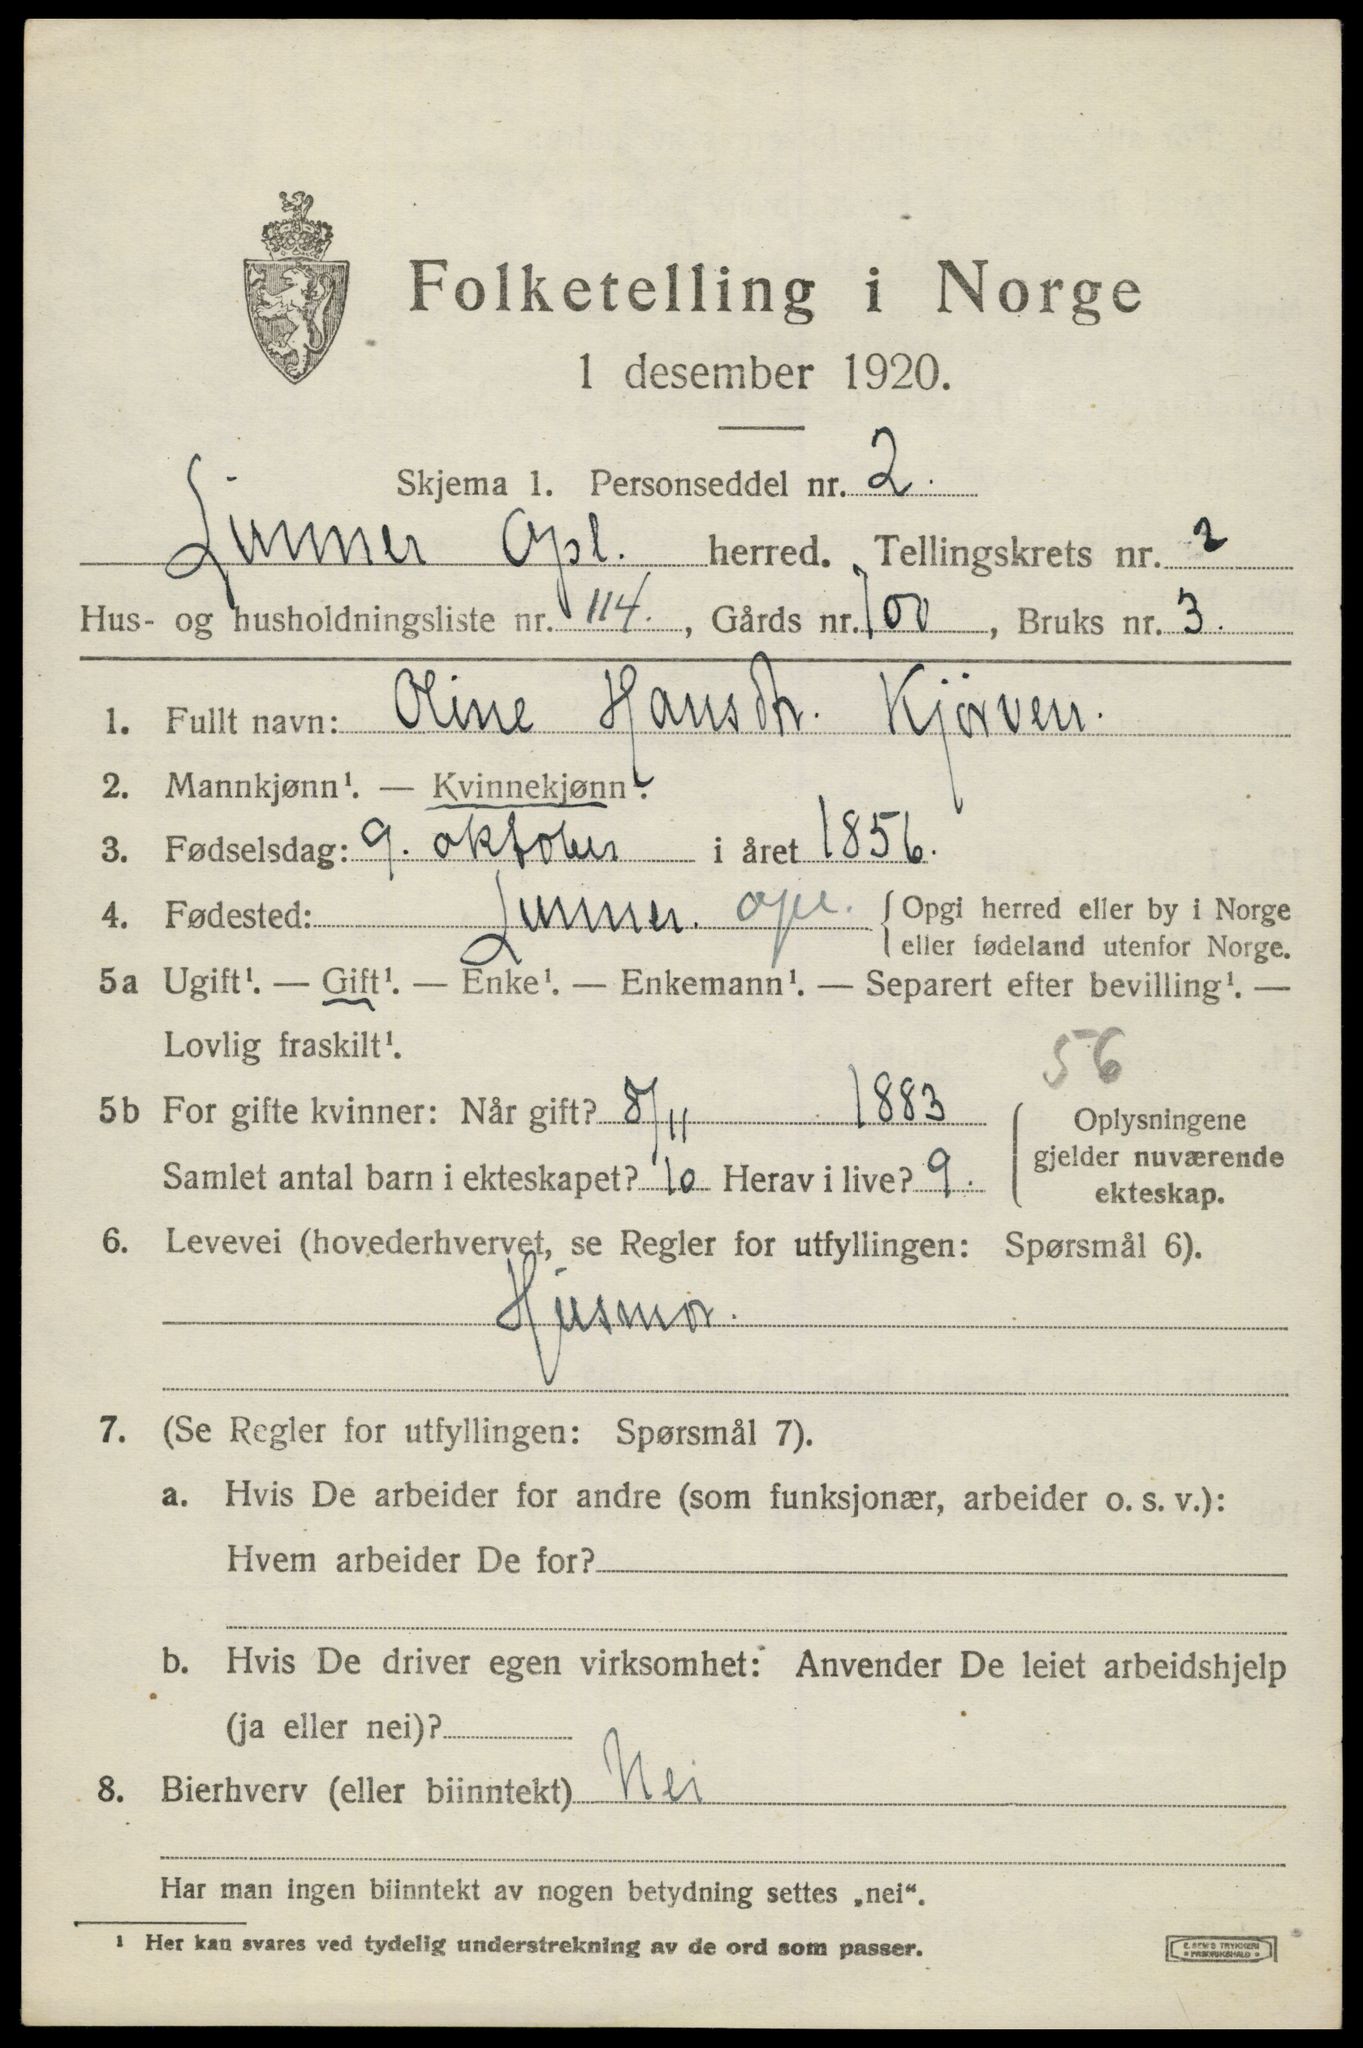 Folketelling i Norge
1 desember 1920.
Skjema 1. Personseddel nr. 2.
Lunner Opl. herred. Tellingskrets nr. 2
Hus- og husholdningsliste nr. 114. , Gårds nr. 100 , Bruks nr. 3.
1. Fullt navn: Oline Hansdtr. Kjørven.
2. Mannkjønn¹. — Kvinnekjønn¹.
3. Fødselsdag: 9. oktober i året 1856.
4. Fødested: Lunner. Opl. { Opgi herred eller by i Norge
eller fødeland utenfor Norge.
5a Ugift¹. — Gift¹. — Enke¹. — Enkemann¹. — Separert efter bevilling¹. —
Lovlig fraskilt¹.
56
5b For gifte kvinner: Når gift? 8/11 1883
Samlet antal barn i ekteskapet? 10 Herav i live? 9.
Oplysningene
gjelder nuværende
ekteskap.
6. Levevei (hovederhvervet, se Regler for utfyllingen: Spørsmål 6).
Husmor.
7. (Se Regler for utfyllingen: Spørsmål 7).
a. Hvis De arbeider for andre (som funksjonær, arbeider o. s. v.):
Hvem arbeider De for?
b. Hvis De driver egen virksomhet: Anvender De leiet arbeidshjelp
(ja eller nei)?
8. Bierhverv (eller biinntekt) Nei
Har man ingen biinntekt av nogen betydning settes „nei“.
¹ Her kan svares ved tydelig understrekning av de ord som passer.